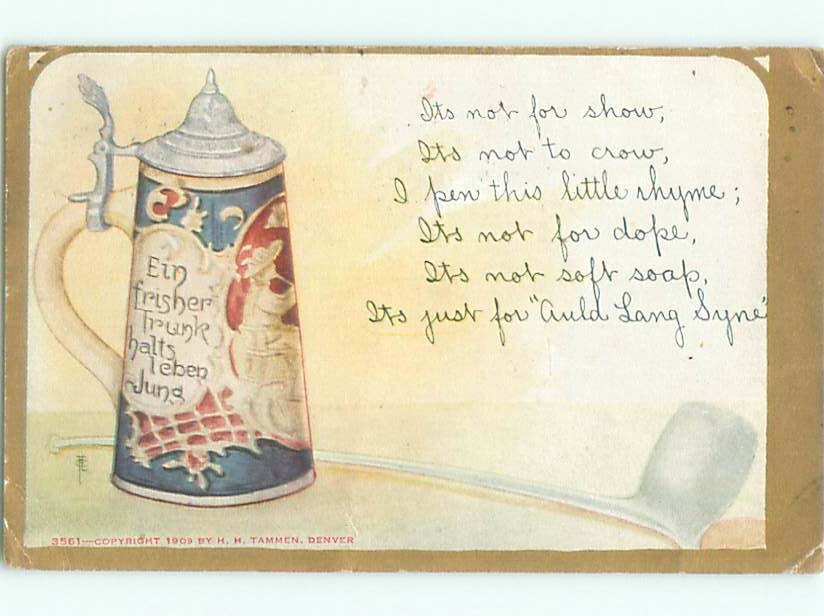 Its not for show,
Its not to crow,
I pen this little rhyme;
Its not for dope,
Its not soft soap,
Its just for "Auld Lang Syne"
Ein
frisher
Trunk
halts
leben
Jung
3561—COPYRIGHT 1909 BY H. H. TAMMEN, DENVER